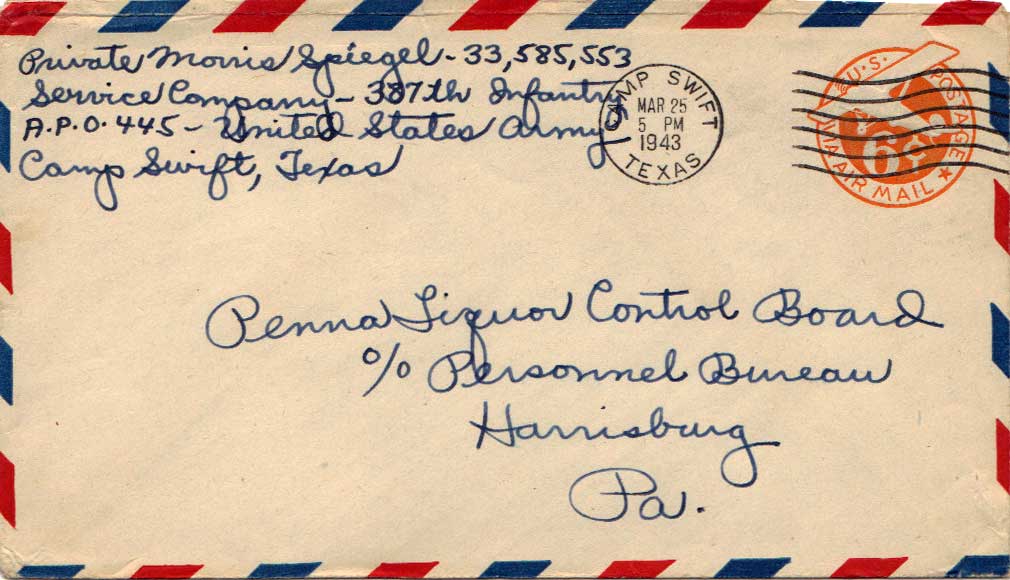 Private Morris Spiegel - 33,585,553
Service Company - 387th Infantry
A.P.O. 445 - United States Army
Camp Swift, Texas
CAMP SWIFT
MAR 25
5 PM
1943
TEXAS
U.S. POSTAGE
6¢
VIA AIR MAIL
Penna Liquor Control Board
c/o Personnel Bureau
Harrisburg
Pa.